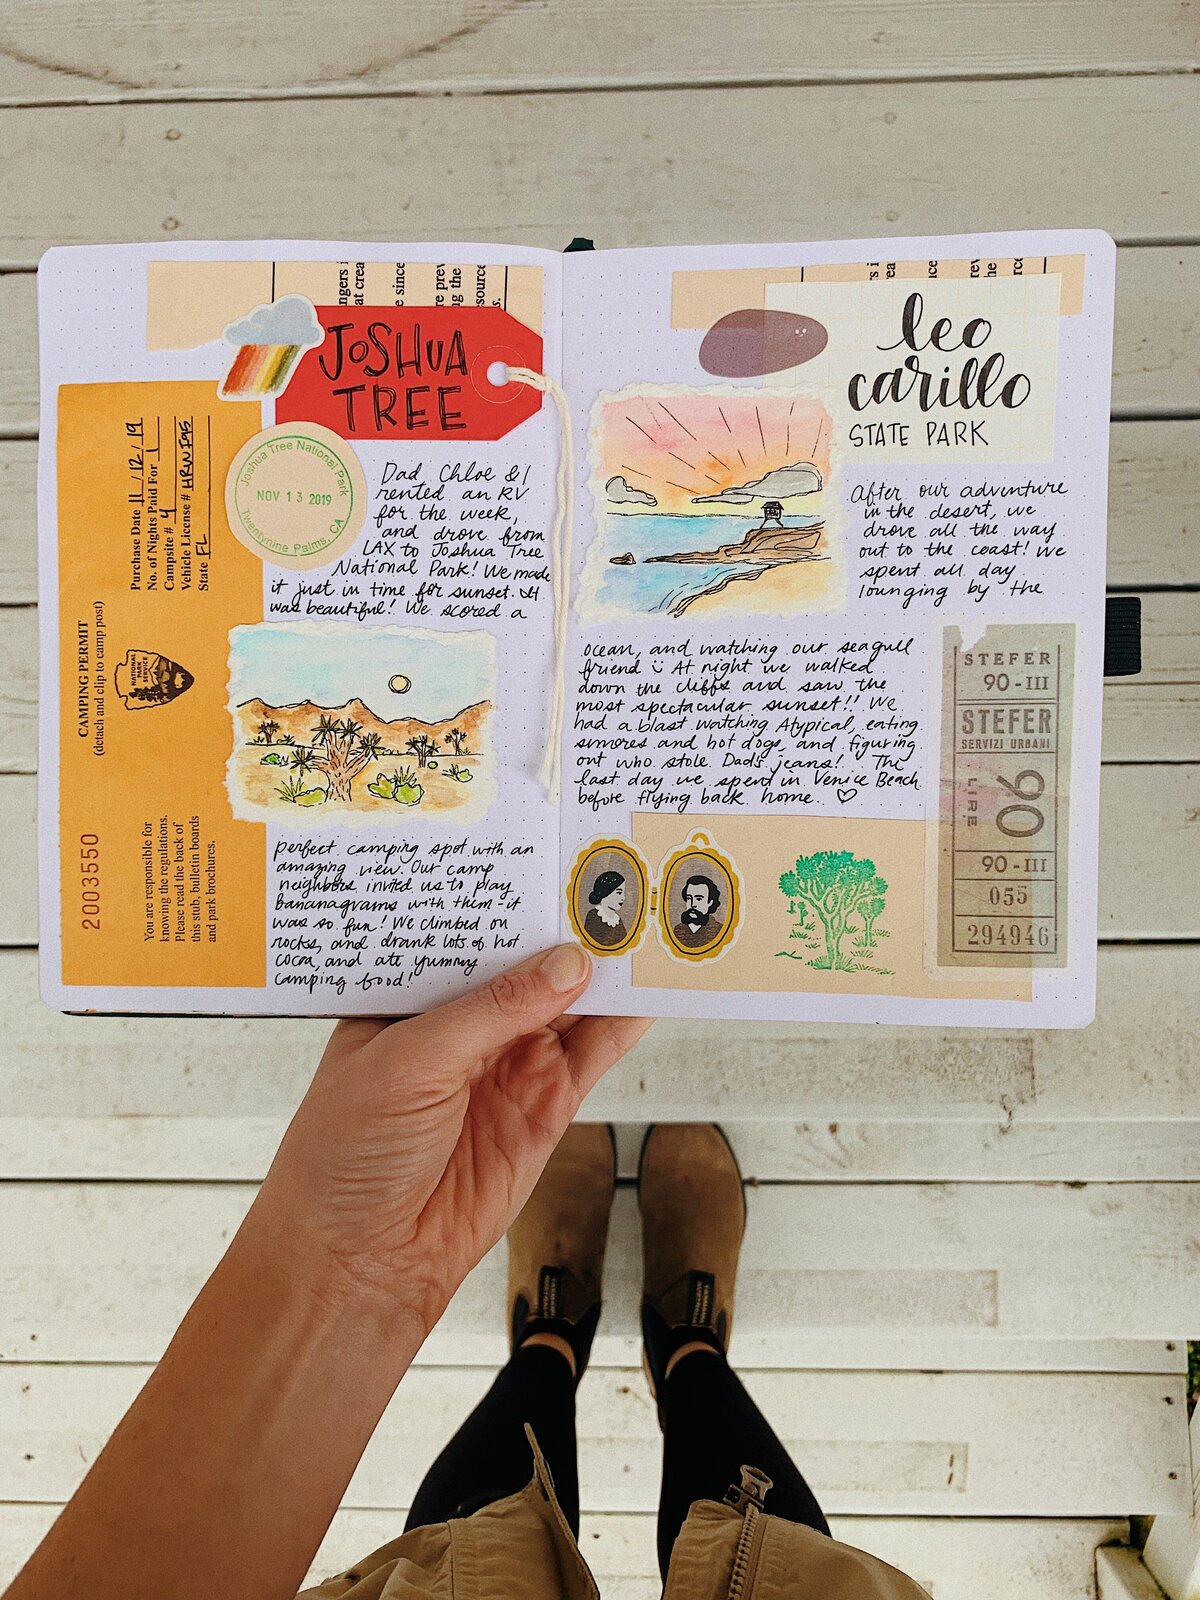 JOSHUA
TREE
Joshua Tree National Park
NOV 13 2019
Twentynine Palms, CA
Dad Chloe & I
rented an RV
for the week,
and drove from
LAX to Joshua Tree
National Park! We made
it just in time for sunset. It
was beautiful! We scored a
perfect camping spot with an
amazing view. Our camp
neighbors invited us to play
Bananagrams with them - it
was so fun! We climbed on
rocks, and drank lots of hot
cocoa, and ate yummy
camping food!
CAMPING PERMIT
(detach and clip to camp post)
Purchase Date 11/12/19
No. of Nights Paid For 1
Campsite # 4
Vehicle License #
State FL
NATIONAL
PARK
SERVICE
2003550
You are responsible for
knowing the regulations.
Please read the back of
this stub, bulletin boards
and park brochures.
leo
carillo
STATE PARK
After our adventure
in the desert, we
drove all the way
out to the coast! We
spent all day
lounging by the
ocean, and watching our seagull
friend At night we walked
down the cliffs and saw the
most spectacular sunset!! We
had a blast watching Atypical, eating
smores and hot dogs, and figuring
out who stole Dad's jeans! The
last day we spent in Venice Beach
before flying back home. ♡
STEFER
90-III
STEFER
SERVIZI URBANI
LIRE
90
90-III
055
294946